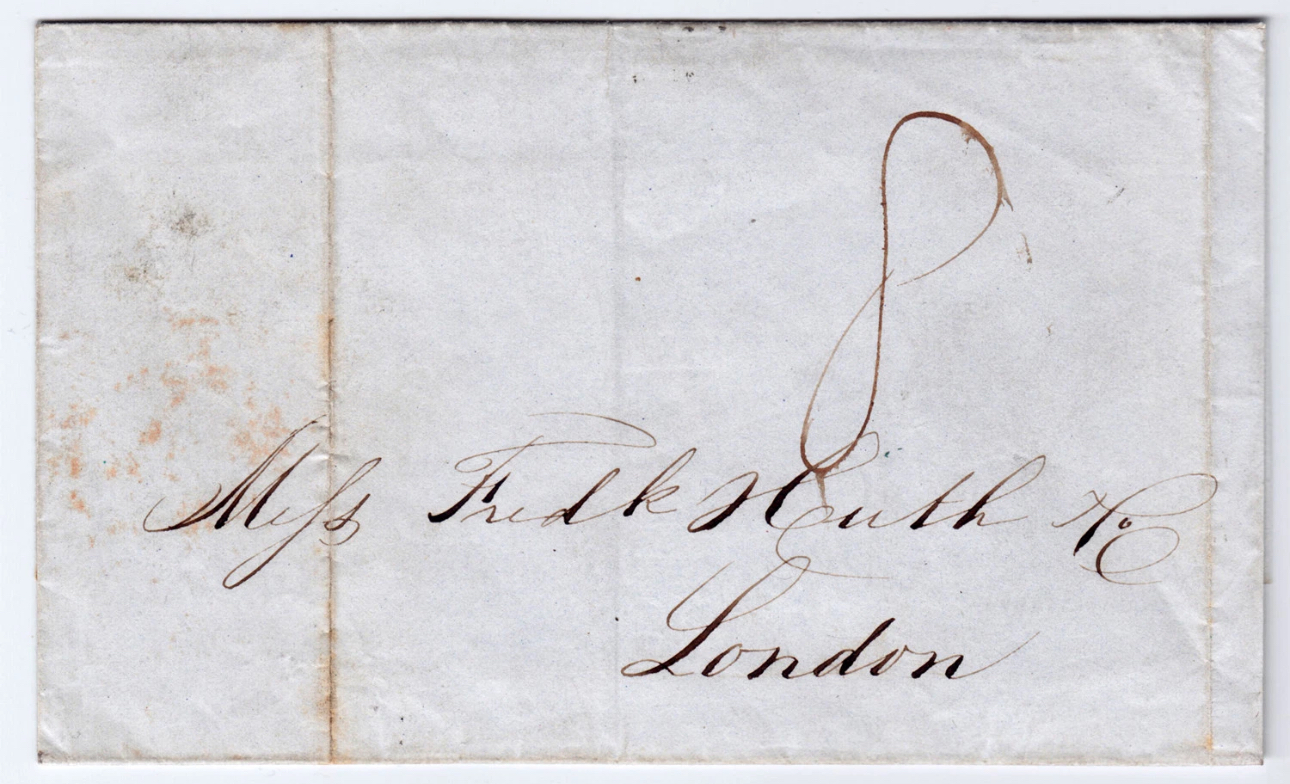 8
Mess Fredk Huth & Co
London